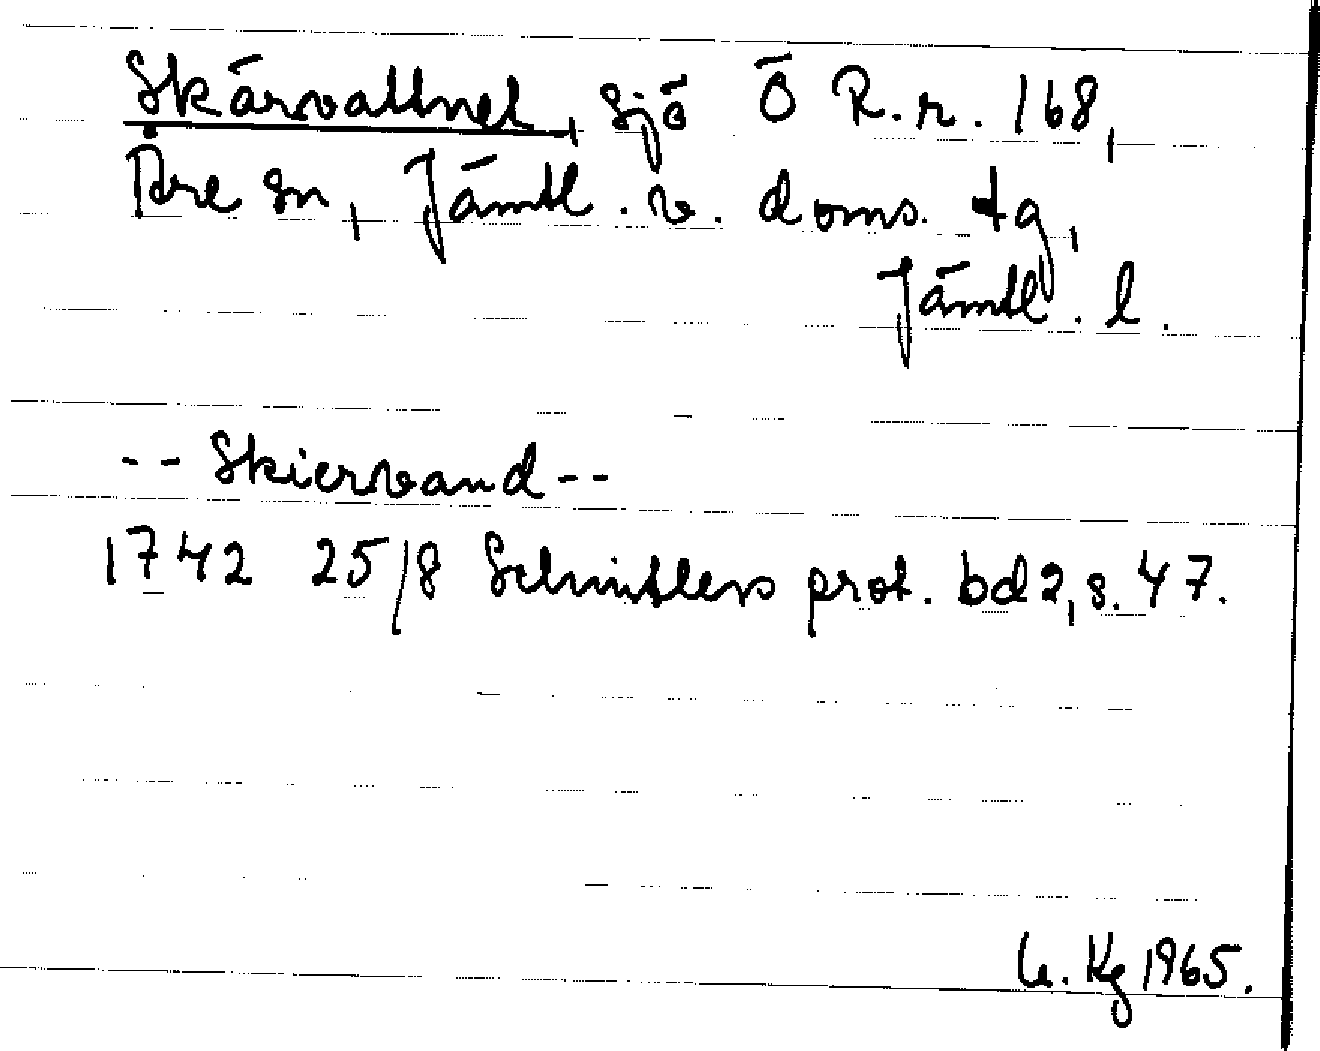 Skärvattnet, sjö Ö R.r. 168,
Åre sn, Jämtl. v. doms. tg,
Jämtl. l.
-- Skiervand --
1742 25/8 Schnitlers prot. bd 2, s. 47.
U. Kg 1965.